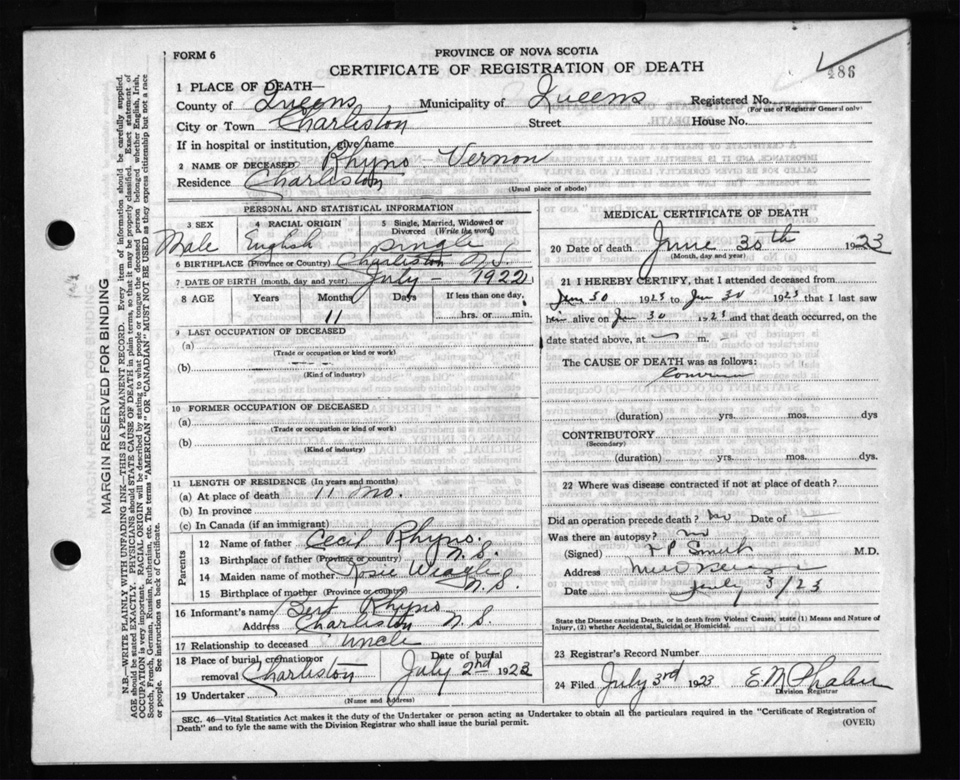 FORM 6
PROVINCE OF NOVA SCOTIA
CERTIFICATE OF REGISTRATION OF DEATH
486
1 PLACE OF DEATH—
County of Queens Municipality of Queens Registered No.
(For use of Registrar General only)
City or Town Charliston Street House No.
If in hospital or institution, give name
2 NAME OF DECEASED Rhyno Vernon
Residence Charliston
(Usual place of abode)
PERSONAL AND STATISTICAL INFORMATION
3 SEX 4 RACIAL ORIGIN 5 Single, Married, Widowed or Divorced (Write the word)
Male English Single
6 BIRTHPLACE (Province or Country) Charliston N.S.
7 DATE OF BIRTH (month, day and year) July — 1922
8 AGE Years Months Days If less than one day,
11 hrs. or min.
9 LAST OCCUPATION OF DECEASED
(a)
(Trade or occupation or kind or work)
(b)
(Kind of industry)
10 FORMER OCCUPATION OF DECEASED
(a)
(Trade or occupation or kind or work)
(b)
(Kind of industry)
11 LENGTH OF RESIDENCE (In years and months)
(a) At place of death 11 mo.
(b) In province
(c) In Canada (if an immigrant)
Parents
12 Name of father Cecil Rhyno
13 Birthplace of father (Province or country) N.S.
14 Maiden name of mother Rosie
15 Birthplace of mother (Province or country) N.S.
16 Informant's name Bert Rhyno
Address Charliston N.S.
17 Relationship to deceased Uncle
18 Place of burial, cremation or removal Charliston Date of burial July 2nd 1923
19 Undertaker
(Name and Address)
MEDICAL CERTIFICATE OF DEATH
20 Date of death June 30th 1923
(Month, day and year)
21 I HEREBY CERTIFY, that I attended deceased from
Jun 30 1923 to Jun 30 1923 that I last saw
him alive on Jun 30 1923 and that death occurred, on
date stated above, at — m.
The CAUSE OF DEATH was as follows:
(duration) yrs. mos. dys
CONTRIBUTORY
(Secondary)
(duration) yrs. mos. dys.
22 Where was disease contracted if not at place of death?
Did an operation precede death? no Date of
Was there an autopsy? no
(Signed) Smith M.D.
Address
Date July 3/23
State the Disease causing Death, or in death from Violent Causes, state (1) Means and Nature of
Injury, (2) whether Accidental, Suicidal or Homicidal.
23 Registrar's Record Number
24 Filed July 3rd 1923 E.M. Phalen
Division Registrar
SEC. 46—Vital Statistics Act makes it the duty of the Undertaker or person acting as Undertaker to obtain all the particulars required in the "Certificate of Registration of
Death" and to fyle the same with the Division Registrar who shall issue the burial permit.
(OVER)
MARGIN RESERVED FOR BINDING
N.B.—WRITE PLAINLY WITH UNFADING INK—THIS IS A PERMANENT RECORD. Every item of information should be carefully supplied.
AGE should be stated EXACTLY. PHYSICIANS should STATE CAUSE OF DEATH in plain terms, so that it may be properly classified. Exact statement of
OCCUPATION is very important. RACIAL ORIGIN will be described by stating to what people or tongue the deceased person belonged whether English, Irish,
Scotch, French, German, Russian, Ruthenian, etc. The terms "AMERICAN" OR "CANADIAN" MUST NOT BE USED as they express citizenship but not a race
or people. See instructions on back of Certificate.